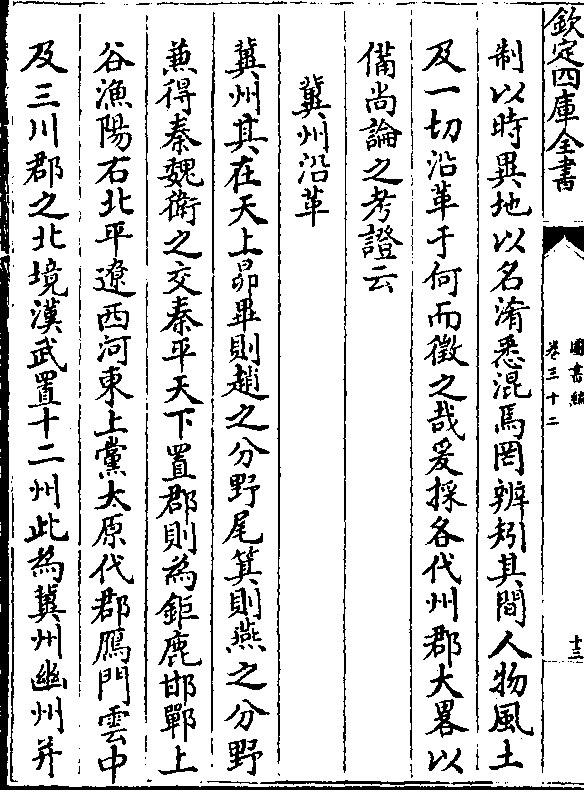 欽定四庫全書
圖書編
卷三十二
十三
制以時異地以名淆悉混焉罔辨矧其間人物風土
及一切沿革于何而徵之哉爰採各代州郡大畧以
備尚論之考證云
冀州沿革
冀州其在天上昴畢則趙之分野尾箕則燕之分野
兼得秦魏衛之交秦平天下置郡則為鉅鹿邯鄲上
谷漁陽右北平遼西河東上黨太原代郡鴈門雲中
及三川郡之北境漢武置十二州此為冀州幽州并